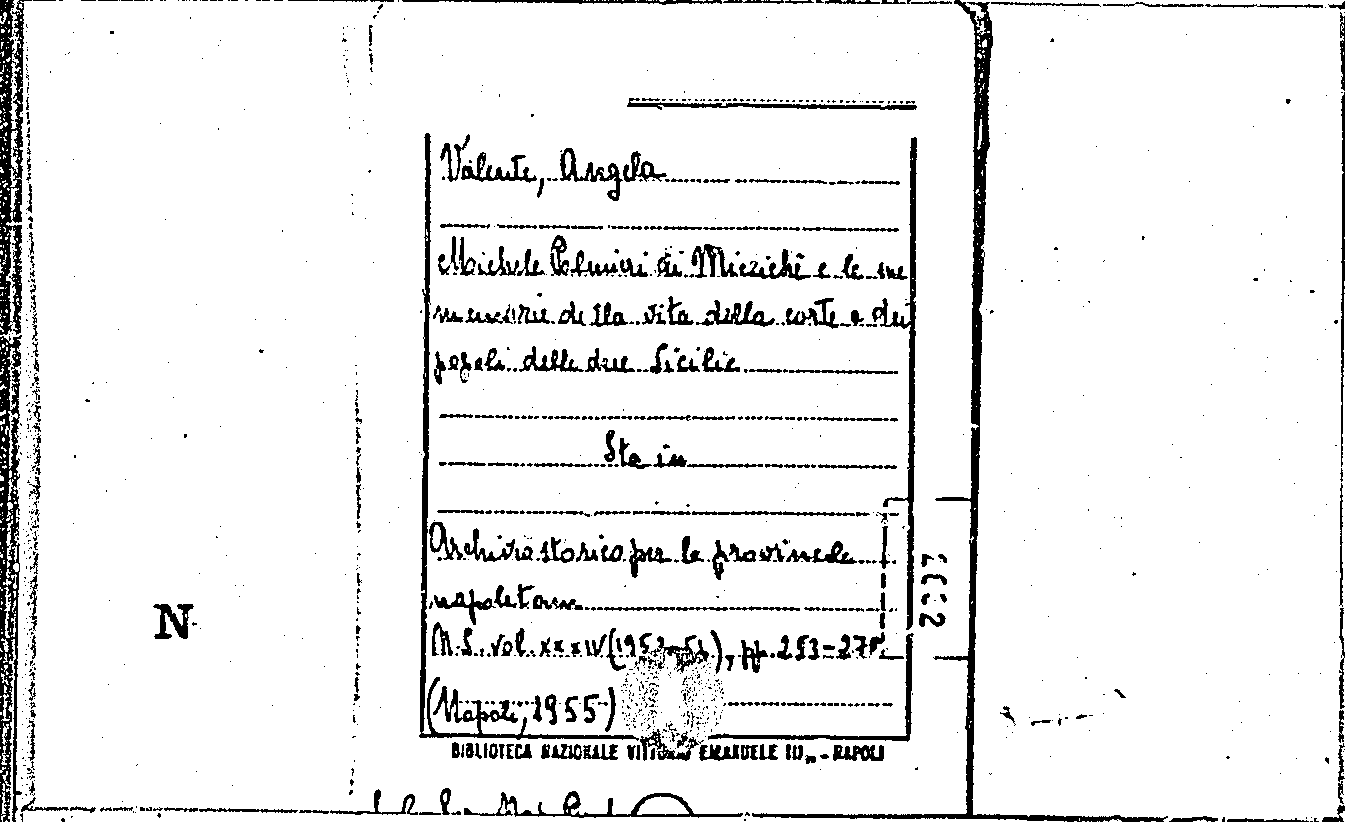 Valente, Angela
Michele Palmieri di Miccichè e le sue
memorie della vita della corte e dei
popoli delle due Sicilie
Sta in
Archivio storico per le provincie
napoletane
N.S. vol. XXXIV (1953-54), pp. 253-27
(Napoli, 1955)
BIBLIOTECA NAZIONALE VITTORIO EMANUELE III - NAPOLI
N